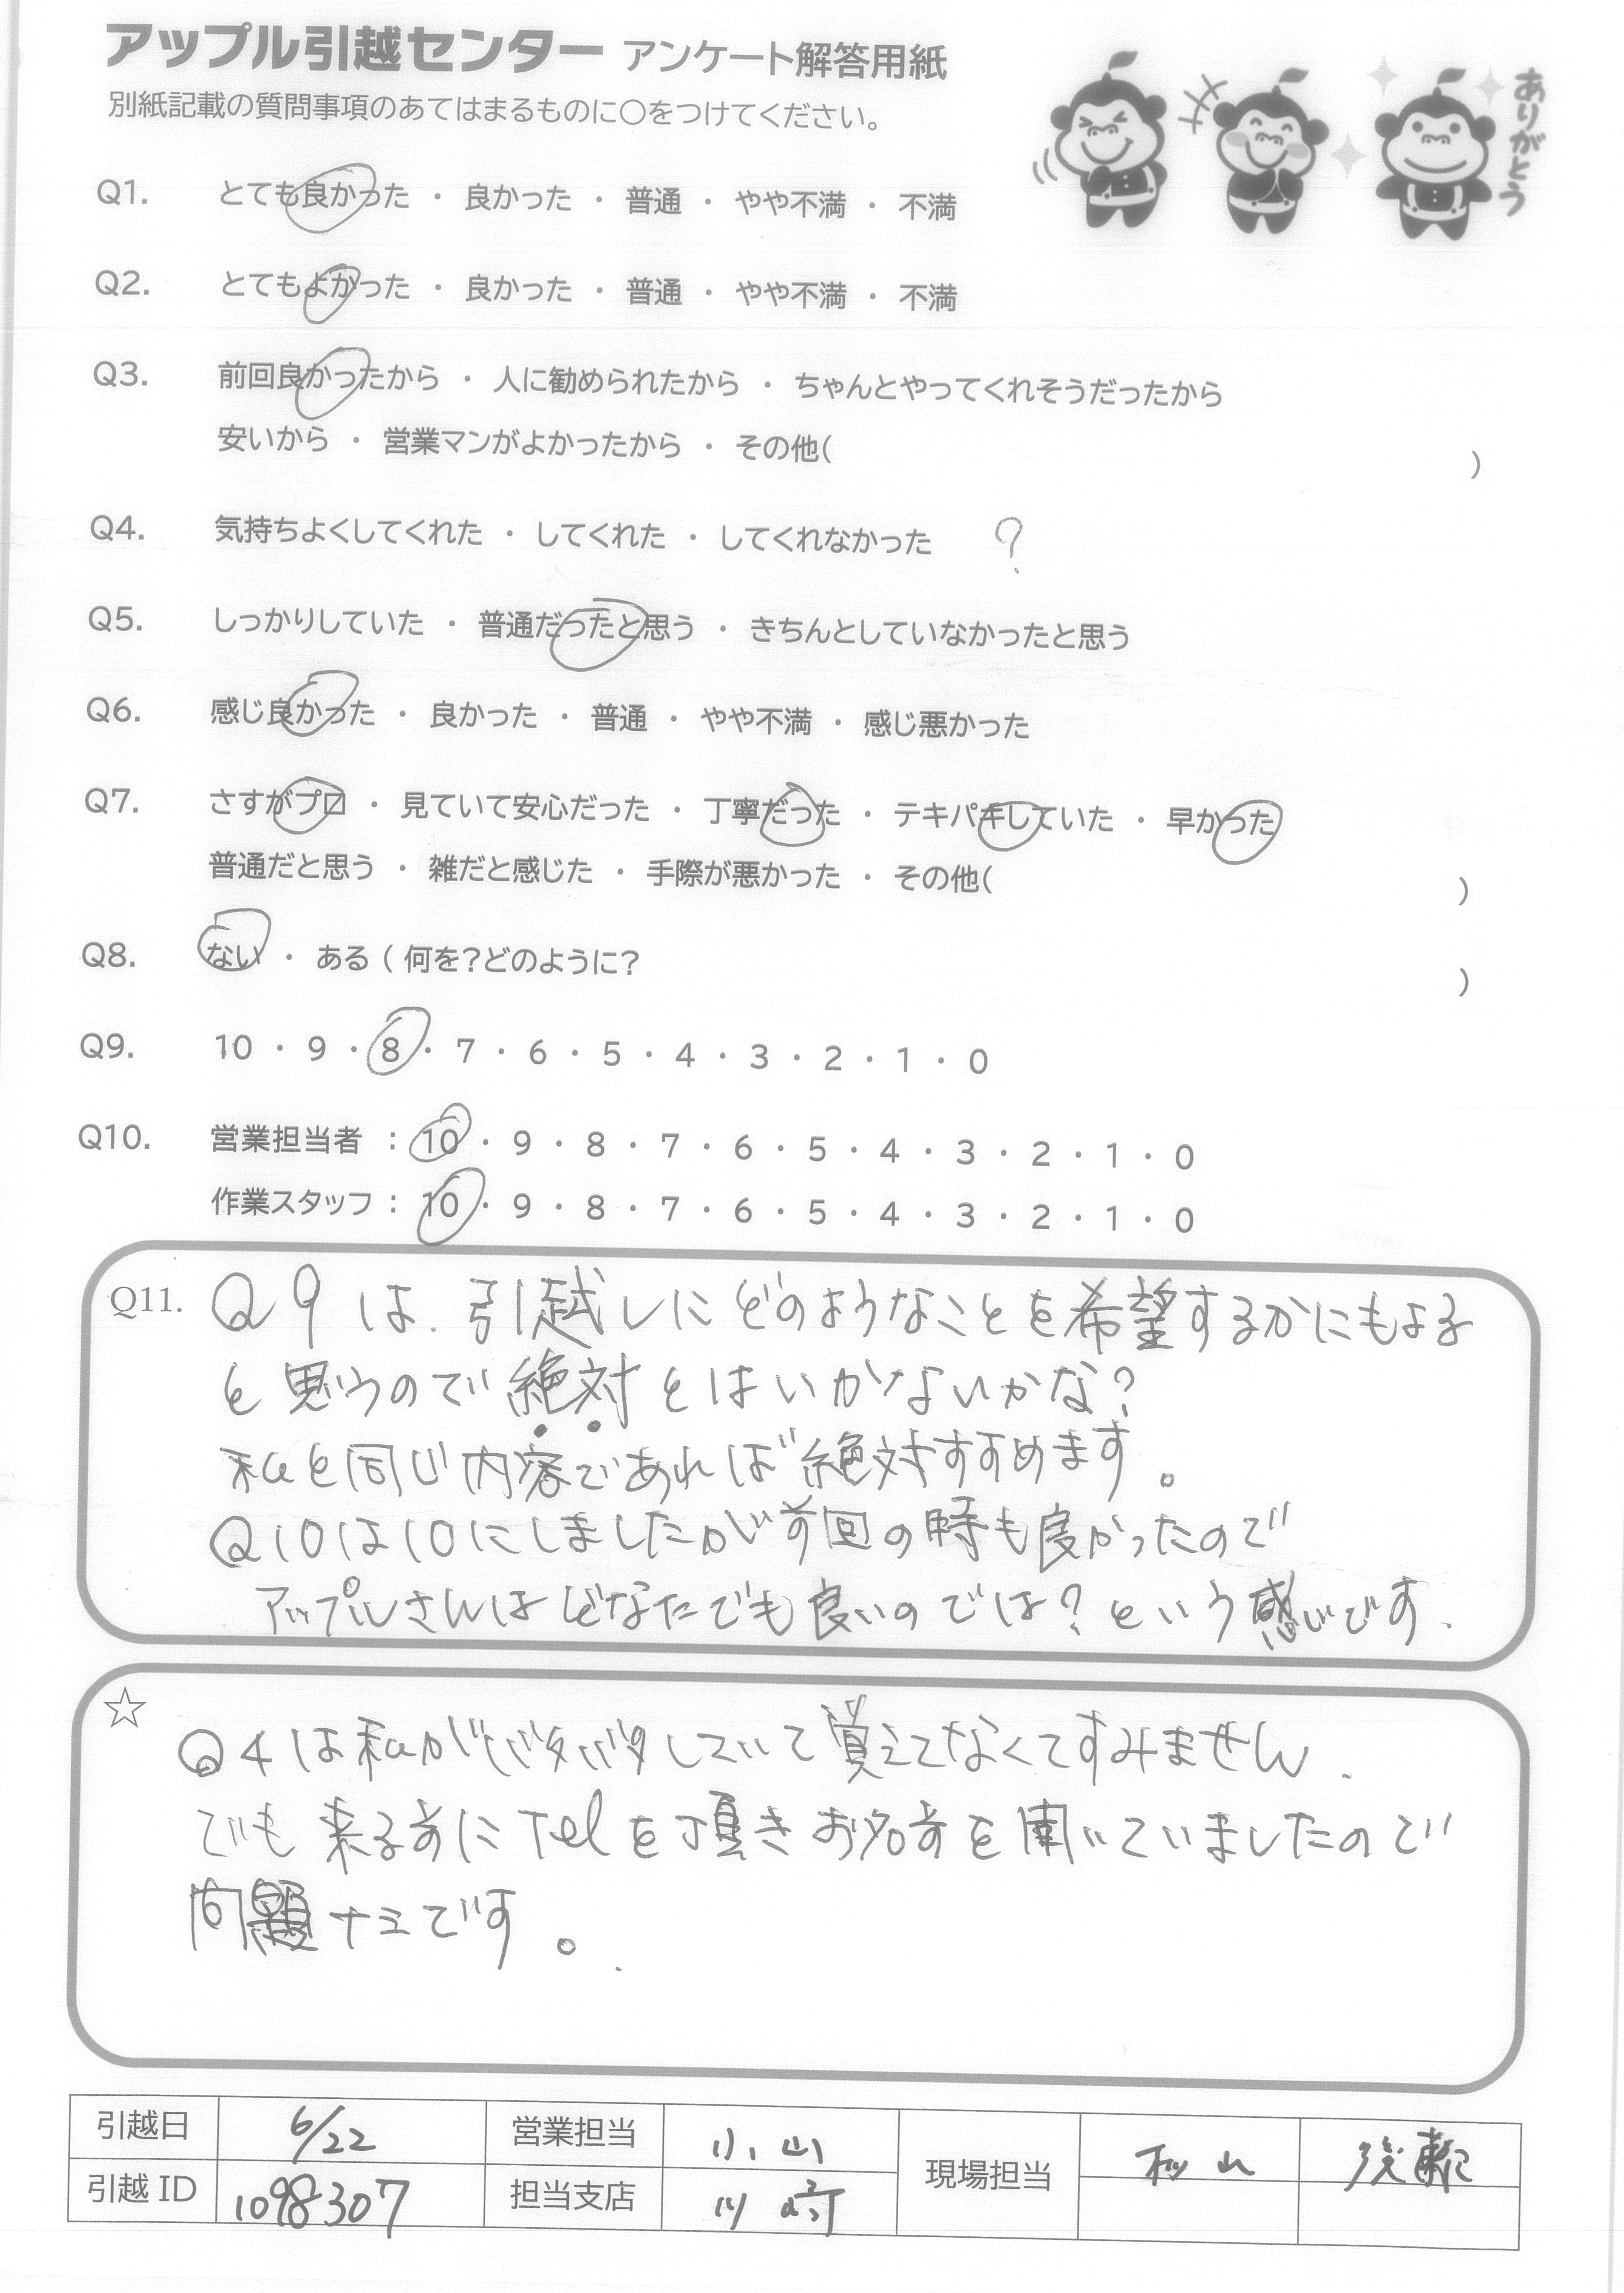 アップル引越センター アンケート解答用紙
別紙記載の質問事項のあてはまるものに〇をつけてください。
ありがとう
Q1. とても良かった ・ 良かった ・ 普通 ・ やや不満 ・ 不満
Q2. とてもよかった ・ 良かった ・ 普通 ・ やや不満 ・ 不満
Q3. 前回良かったから ・ 人に勧められたから ・ ちゃんとやってくれそうだったから
安いから ・ 営業マンがよかったから ・ その他( )
Q4. 気持ちよくしてくれた ・ してくれた ・ してくれなかった ?
Q5. しっかりしていた ・ 普通だったと思う ・ きちんとしていなかったと思う
Q6. 感じ良かった ・ 良かった ・ 普通 ・ やや不満 ・ 感じ悪かった
Q7. さすがプロ ・ 見ていて安心だった ・ 丁寧だった ・ テキパキしていた ・ 早かった
普通だと思う ・ 雑だと感じた ・ 手際が悪かった ・ その他( )
Q8. ない ・ ある ( 何を?どのように? )
Q9. 10 ・ 9 ・ 8 ・ 7 ・ 6 ・ 5 ・ 4 ・ 3 ・ 2 ・ 1 ・ 0
Q10. 営業担当者 : 10 ・ 9 ・ 8 ・ 7 ・ 6 ・ 5 ・ 4 ・ 3 ・ 2 ・ 1 ・ 0
作業スタッフ : 10 ・ 9 ・ 8 ・ 7 ・ 6 ・ 5 ・ 4 ・ 3 ・ 2 ・ 1 ・ 0
Q11. Q9は、引越しにどのようなことを希望するかにもよる
と思うので絶対とはいかないかな?
私と同じ内容であれば絶対すすめます。
Q10は10にしましたが前回の時も良かったので
アップルさんはどなたでも良いのでは?という感じです.
☆
Q4は私がバタバタしていて覚えてなくてすみません.
でも来る前にTelを頂きお名前を聞いていましたので
問題ナシです。
引越日 6/22 営業担当 小山 現場担当 松山
引越ID 1098307 担当支店 川崎